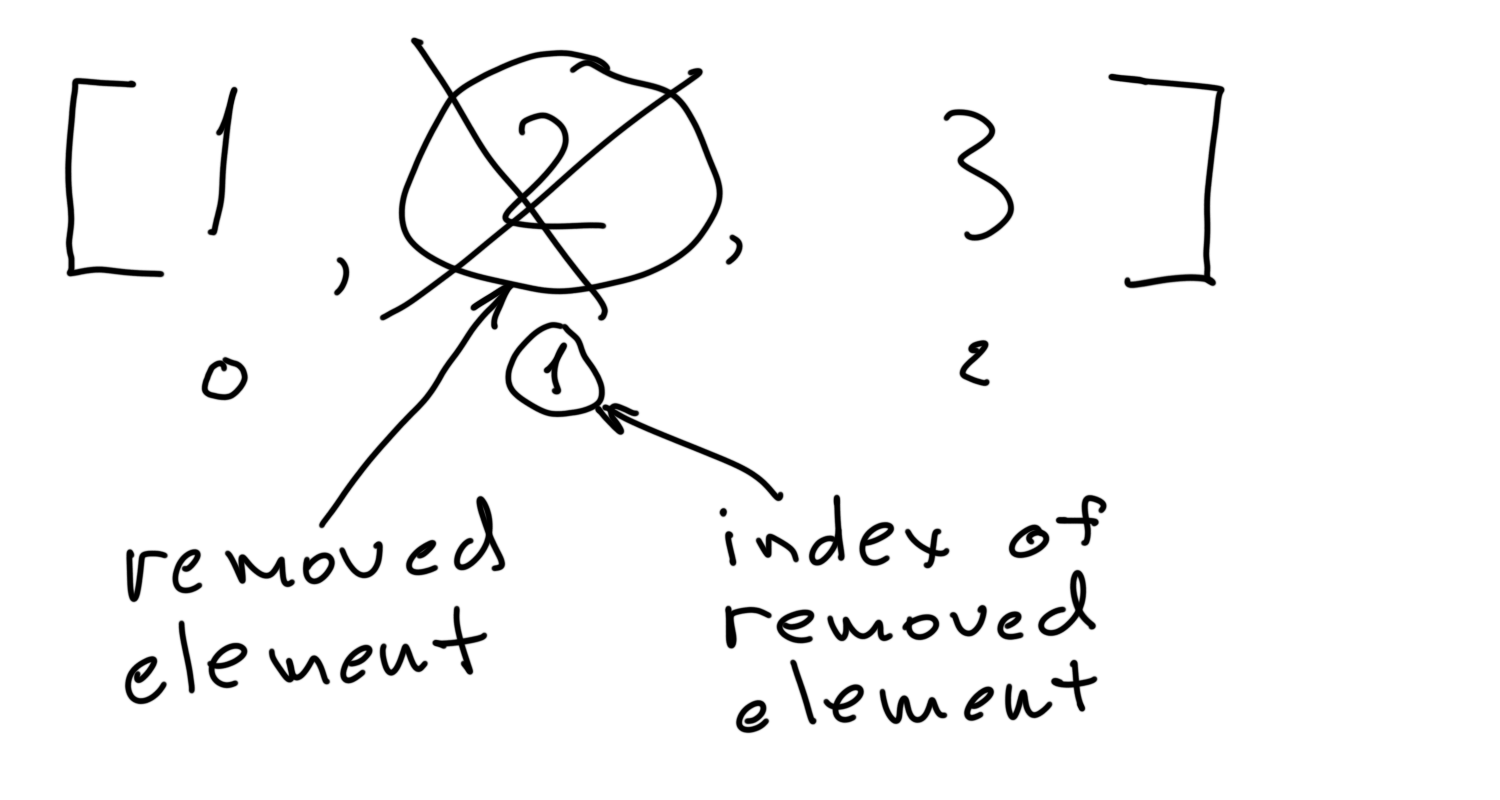 [ 1 , 2 , 3 ]
0 1 2
removed
element
index of
removed
element